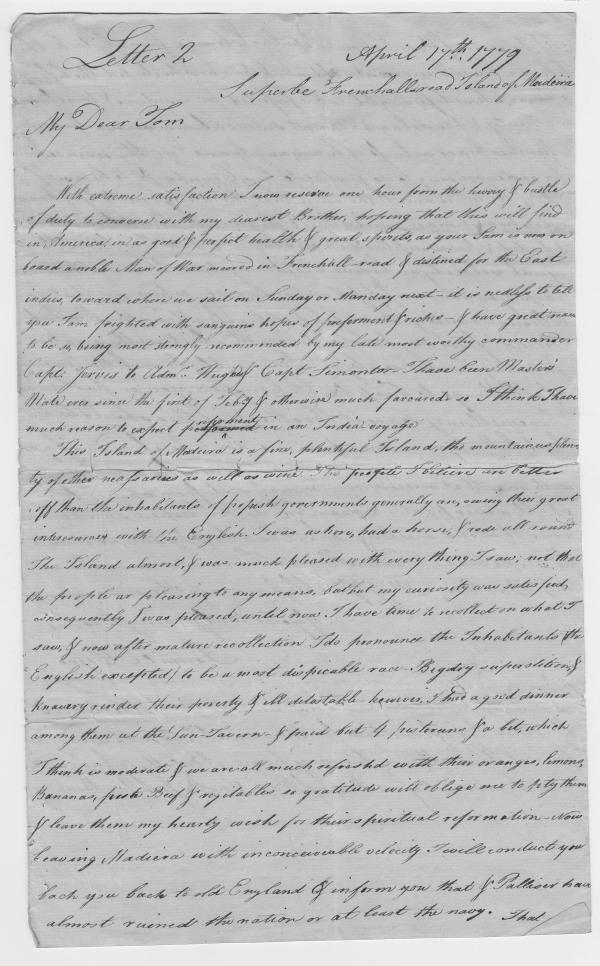 Letter 2
April 17th. 1779
Superbe Frenchall-road Island of Madeira
My Dear Tom
With extreme satisfaction I now reserve one hour from the hurry & bustle
of duty to converse with my dearest Brother, hoping that this will find
in America in as good & perfect health & great spirits, as your Sam is now on
board a noble Man of War moored in Frenchall-road & destined for the East
indies, toward where we sail on Sunday or Monday next - it is nedless to tell
you I am frighted with sanguine hopes of preferment & riches - & have great reason
to be so, being most strongly recommended by my late most worthy commander
Capt. Jervis to Adml. Hughes & Capt. Simonton - I have been Masters
Mate ever since the first of Feby & otherwise much favoured so I think I have
much reason to expect preferment in an India voyage
This Island of Madeira is a fine, plentiful Island, the mountainous plen-
ty of other nessasaries as well as wine. The people I beleive are better
off than the inhabitants of popish governments generally are, owing their great
intercourse with the English. I was ashore, had a horse, & rode all round
The Island almost, & was much pleased with every thing I saw; not that
the people ar pleasing to any means, but but my curiosity was satisfied,
consequently I was pleased, until now I have time to recollect on what I
saw, & now after mature recollection I do pronounce the Inhabitants (the
English excepted) to be a most dispicable race - Bigotry superstition, &
knavery rinder their poverty & ill detestable however, I had a good dinner
among them at the Sun-Tavern & paid but 4 pistereens & a bit, which
I think is moderate & we are all much refreshd with their oranges, lemons,
Bananas, fresh Beef & vegitables so gratitude will oblige me to pity them
& leave them my hearty wish for their spiritual reformation - Now
leaving Madiera with inconceivable velocity I will conduct you
back you back to old England & inform you that & Palliser have
almost ruined the nation or at least the navy. That